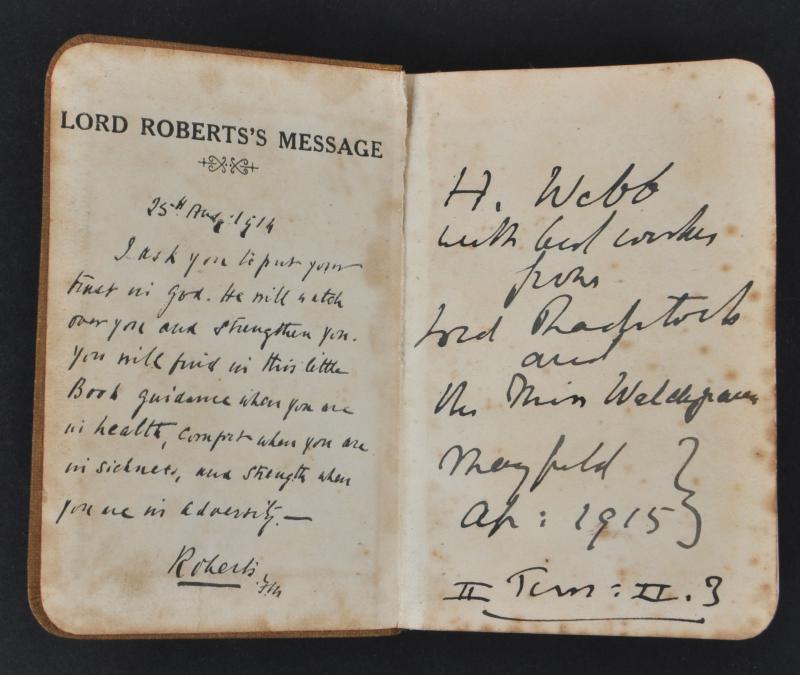 LORD ROBERTS'S MESSAGE
25th Aug. 1914
I ask you to put your
trust in God. He will watch
over you and strengthen you.
You will find in this little
Book guidance when you are
in health, comfort when you are
in sickness, and strength when
you are in adversity.—
Roberts F.M
H. Webb
with best wishes
from
Lord Radstock
and
the Miss Waldegraves
Mayfield
Ap: 1915
II Tim: II. 3